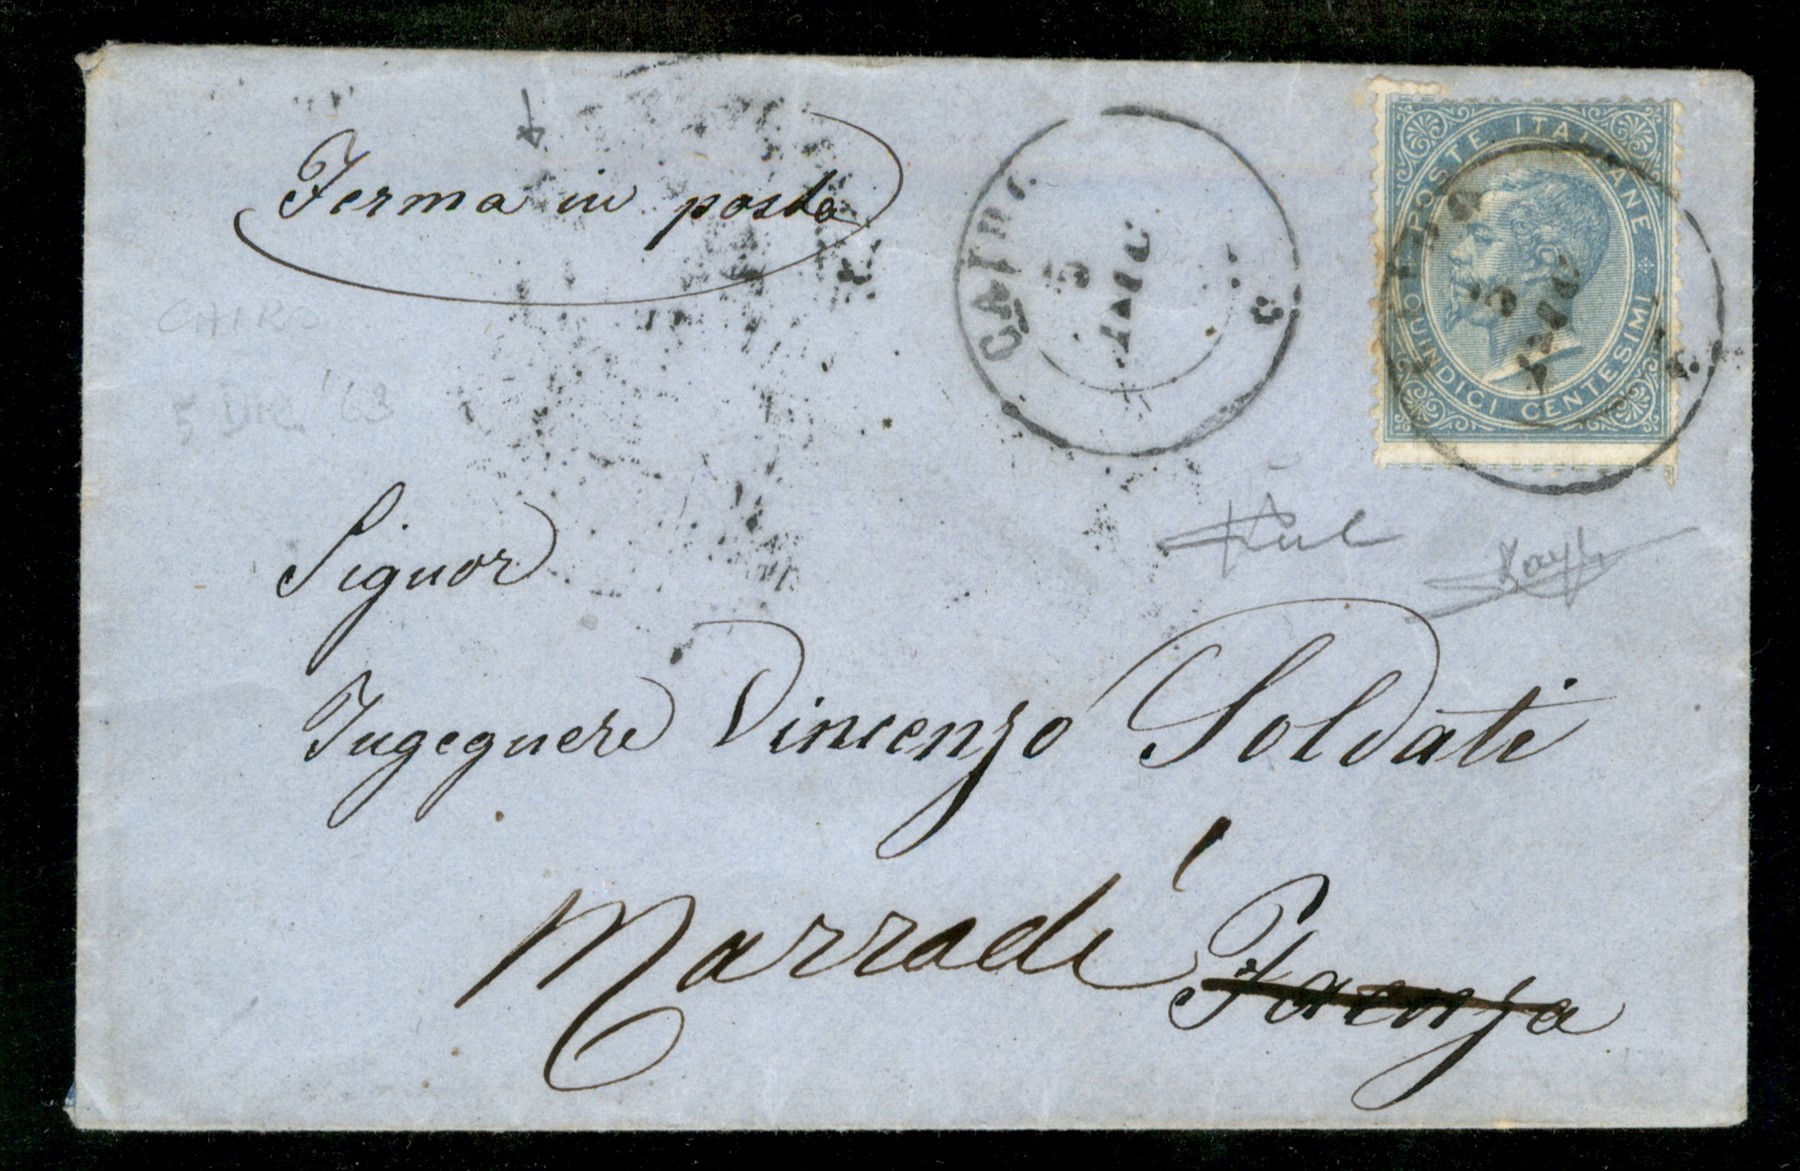 Ferma in posta
CAIRO
5
POSTE ITALIANE
QUINDICI CENTESIMI
5
CAIRO
5 DIC. '63
Signor
Ingegnere Vincenzo Soldati
Marradi Faenza